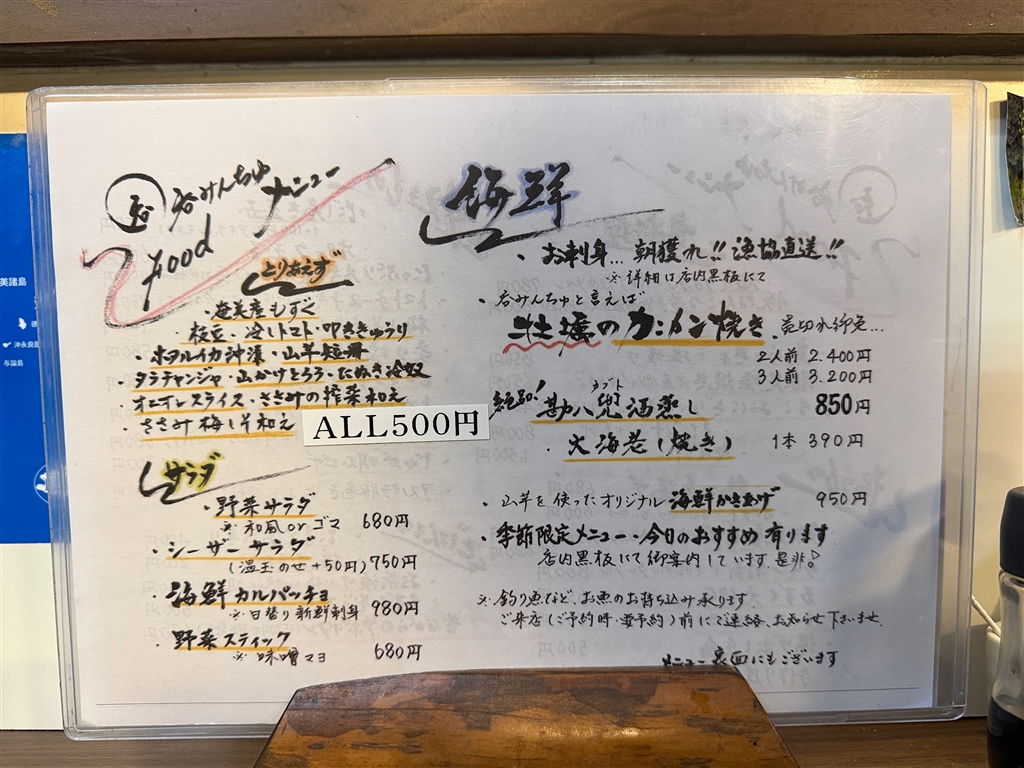 呑みんちゅ メニュー
Food
とりあえず
・奄美産もずく
・枝豆・冷しトマト・叩ききゅうり
・ホタルイカ沖漬・山芋短冊
・タラチャンジャ・山かけとろろ・たぬき冷奴
・オニオンスライス・ささみの搾菜和え
・ささみ梅しそ和え
ALL500円
サラダ
・野菜サラダ
※和風orゴマ 680円
・シーザーサラダ
(温玉のせ+50円) 750円
海鮮カルパッチョ
※日替り新鮮刺身 980円
野菜スティック
※味噌マヨ 680円
海鮮
・お刺身…朝獲れ!!漁協直送!!
※詳細は店内黒板にて
・呑みんちゅと言えば
牡蠣のカンカン焼き 品切れ御免…
2人前 2.400円
3人前 3.200円
絶品! 勘八兜酒蒸し 850円
カブト
・大海老(焼き) 1本 390円
・山芋を使ったオリジナル 海鮮かきあげ 950円
・季節限定メニュー・今日のおすすめ有ります
店内黒板にて御案内しています.是非!
※釣り魚など、お魚のお持ち込み承ります
ご来店(ご予約時・要予約)前にご連絡、お知らせ下さいませ.
メニュー裏面にもございます
美諸島
沖永良部
与論島